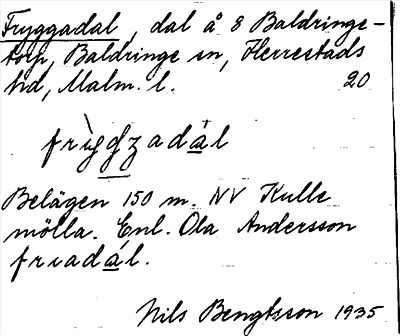 Fryggadal, dal å 8 Baldringe-
torp, Baldringe sn, Herrestads
hd, Malm. l. 20
frìggzadál
Belägen 150 m. NV Kulle
mölla. Enl. Ola Andersson
frıadál.
Nils Bengtsson 1935